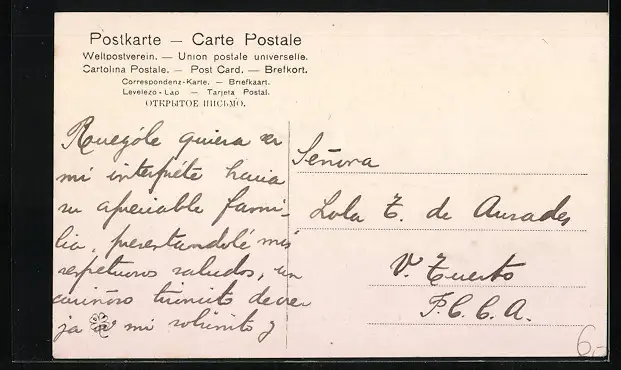 Postkarte — Carte Postale
Weltpostverein. — Union postale universelle.
Cartolina Postale. — Post Card. — Brefkort.
Correspondenz-Karte. — Briefkaart.
Levelezo-Lap — Tarjeta Postal.
ОТКРЫТОЕ ПИСЬМО.
Ruególe quiera ser
mi interpréte hacia
su apreciable fami-
lia, presentandolé mis
respetuosos saludos, un
cariñoso
ja mi sobrinito y
Señora
Lola T. de
V. Tuerto
F.C.C.A.
6,-